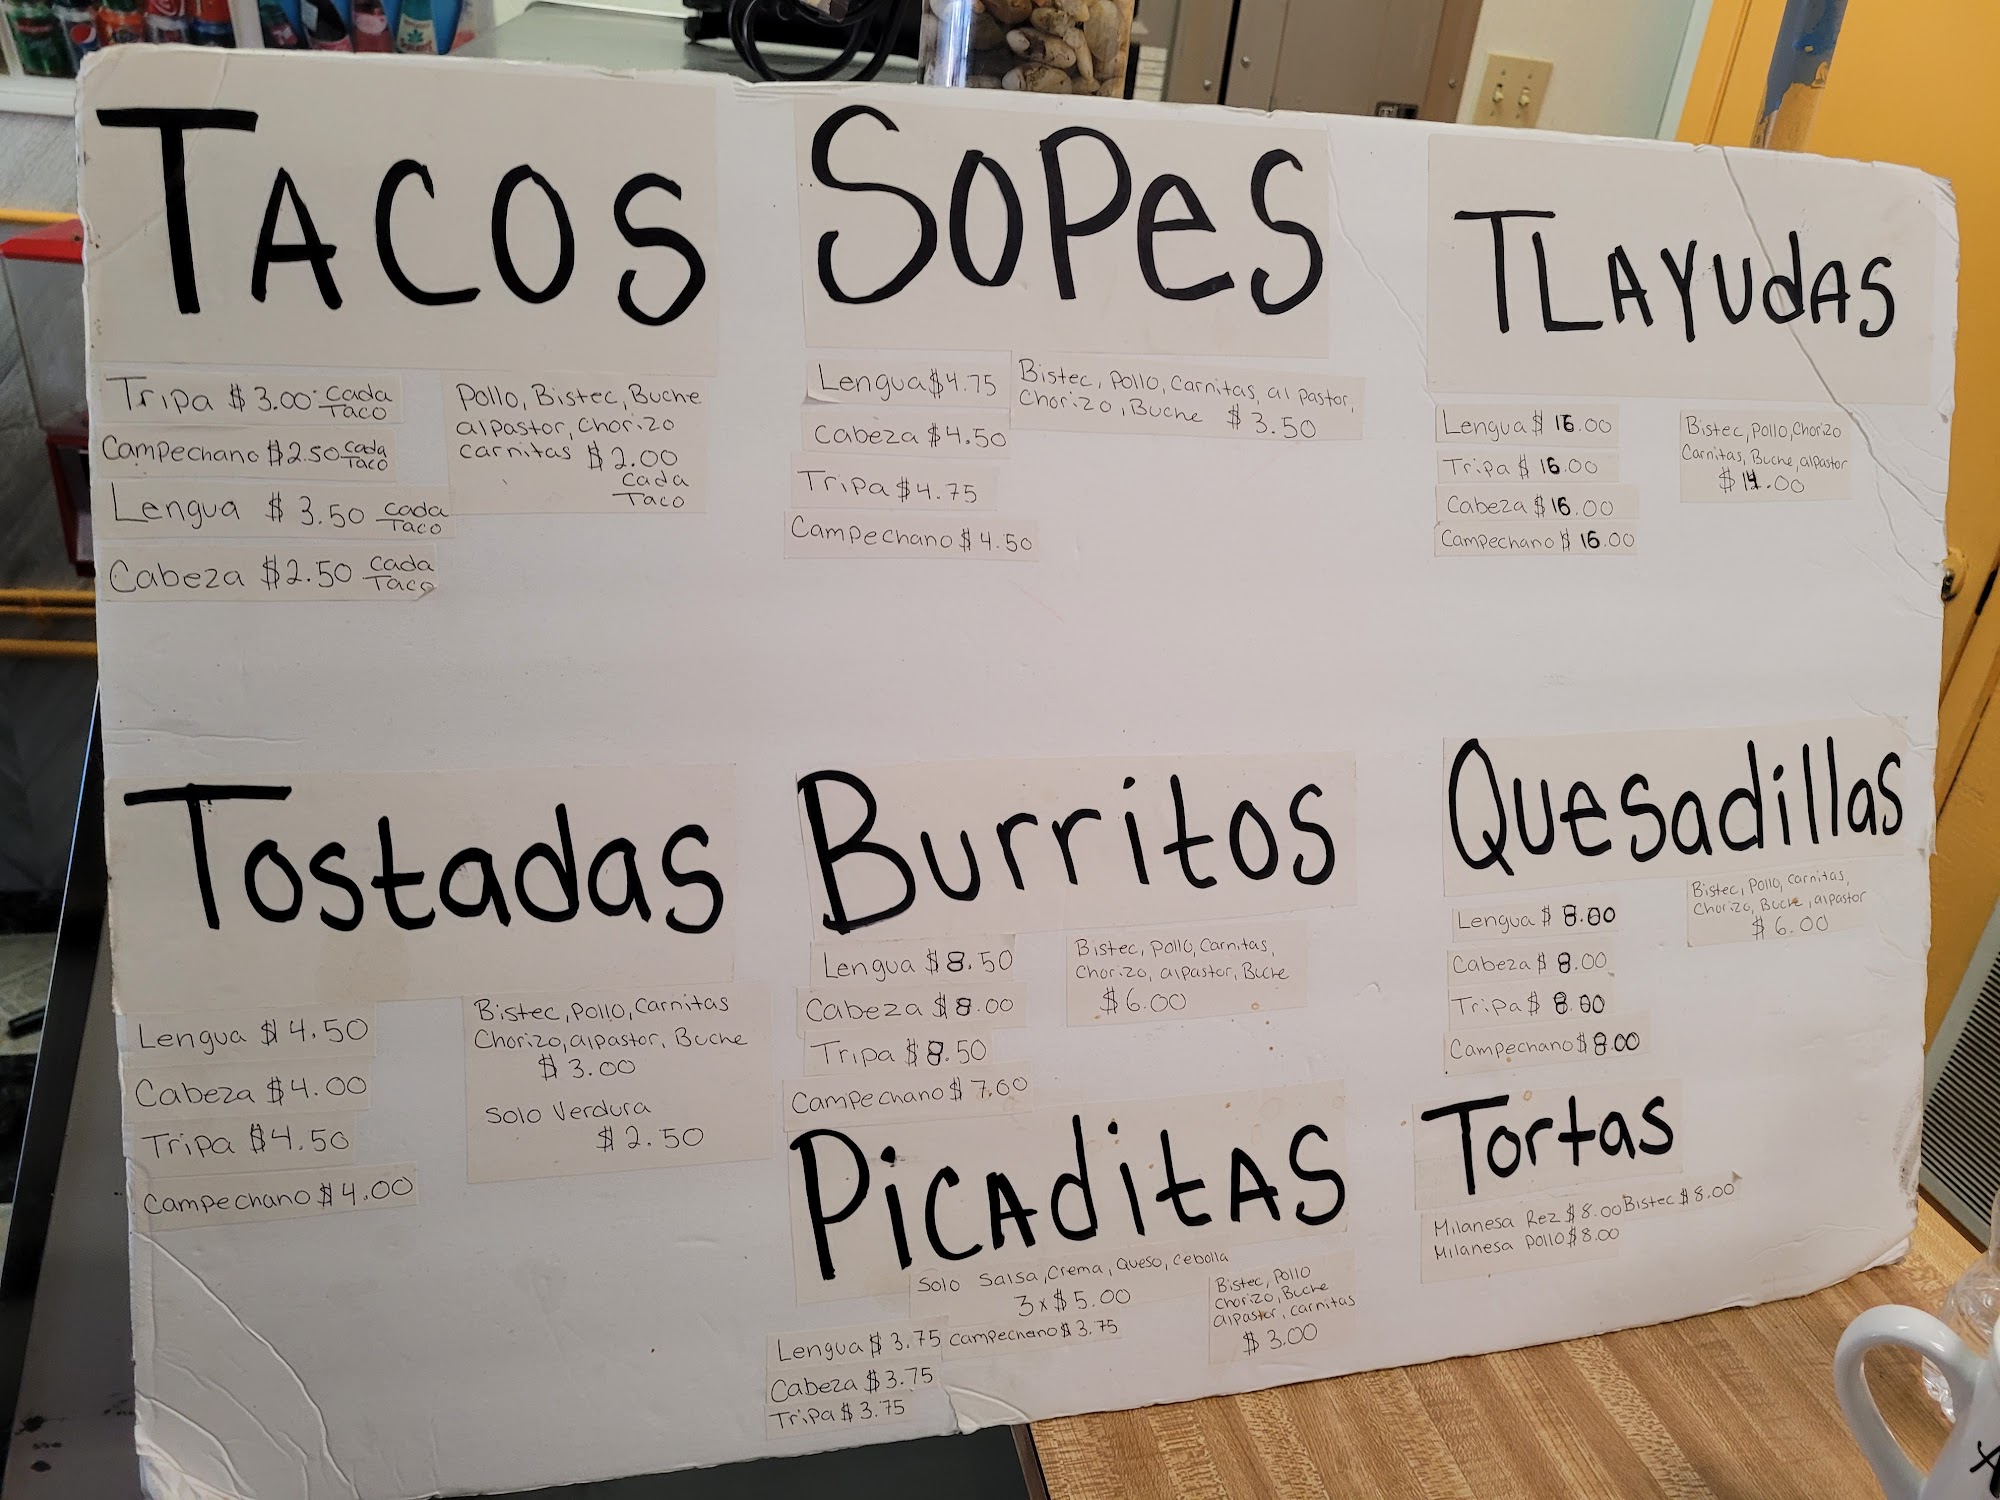 TACOS
Tripa $3.00 cada
Taco
Campechano $2.50 cada
Taco
Lengua $3.50 cada
Taco
Cabeza $2.50 cada
Taco
Pollo, Bistec, Buche
alpastor, Chorizo
carnitas $2.00
cada
Taco
SOPes
Lengua $4.75
Cabeza $4.50
Tripa $4.75
Campechano $4.50
Bistec, Pollo, Carnitas, al pastor,
Chorizo, Buche $3.50
TLAYUdAS
Lengua $16.00
Tripa $16.00
Cabeza $16.00
Campechano $16.00
Bistec, Pollo, Chorizo
Carnitas, Buche, alpastor
Tostadas
Lengua $4.50
Cabeza $4.00
Tripa $4.50
Campechano $4.00
Bistec, Pollo, Carnitas
Chorizo, alpastor, Buche
$3.00
Solo Verdura
$2.50
Burritos
Lengua $8.50
Cabeza $8.00
Tripa $8.50
Campechano $7.00
Bistec, Pollo, Carnitas,
Chorizo, alpastor, Buche
$6.00
Quesadillas
Lengua $8.00
Cabeza $8.00
Tripa $8.00
Campechano $8.00
Bistec, Pollo, Carnitas,
Chorizo, Buche, alpastor
$6.00
PiCAditAS
Solo Salsa, Crema, Queso, Cebolla
3x$5.00
Lengua $3.75 Campechano $3.75
Cabeza $3.75
Tripa $3.75
Bistec, Pollo
Chorizo, Buche
alpastor, carnitas
$3.00
Tortas
Milanesa Rez $8.00 Bistec $8.00
Milanesa Pollo $8.00